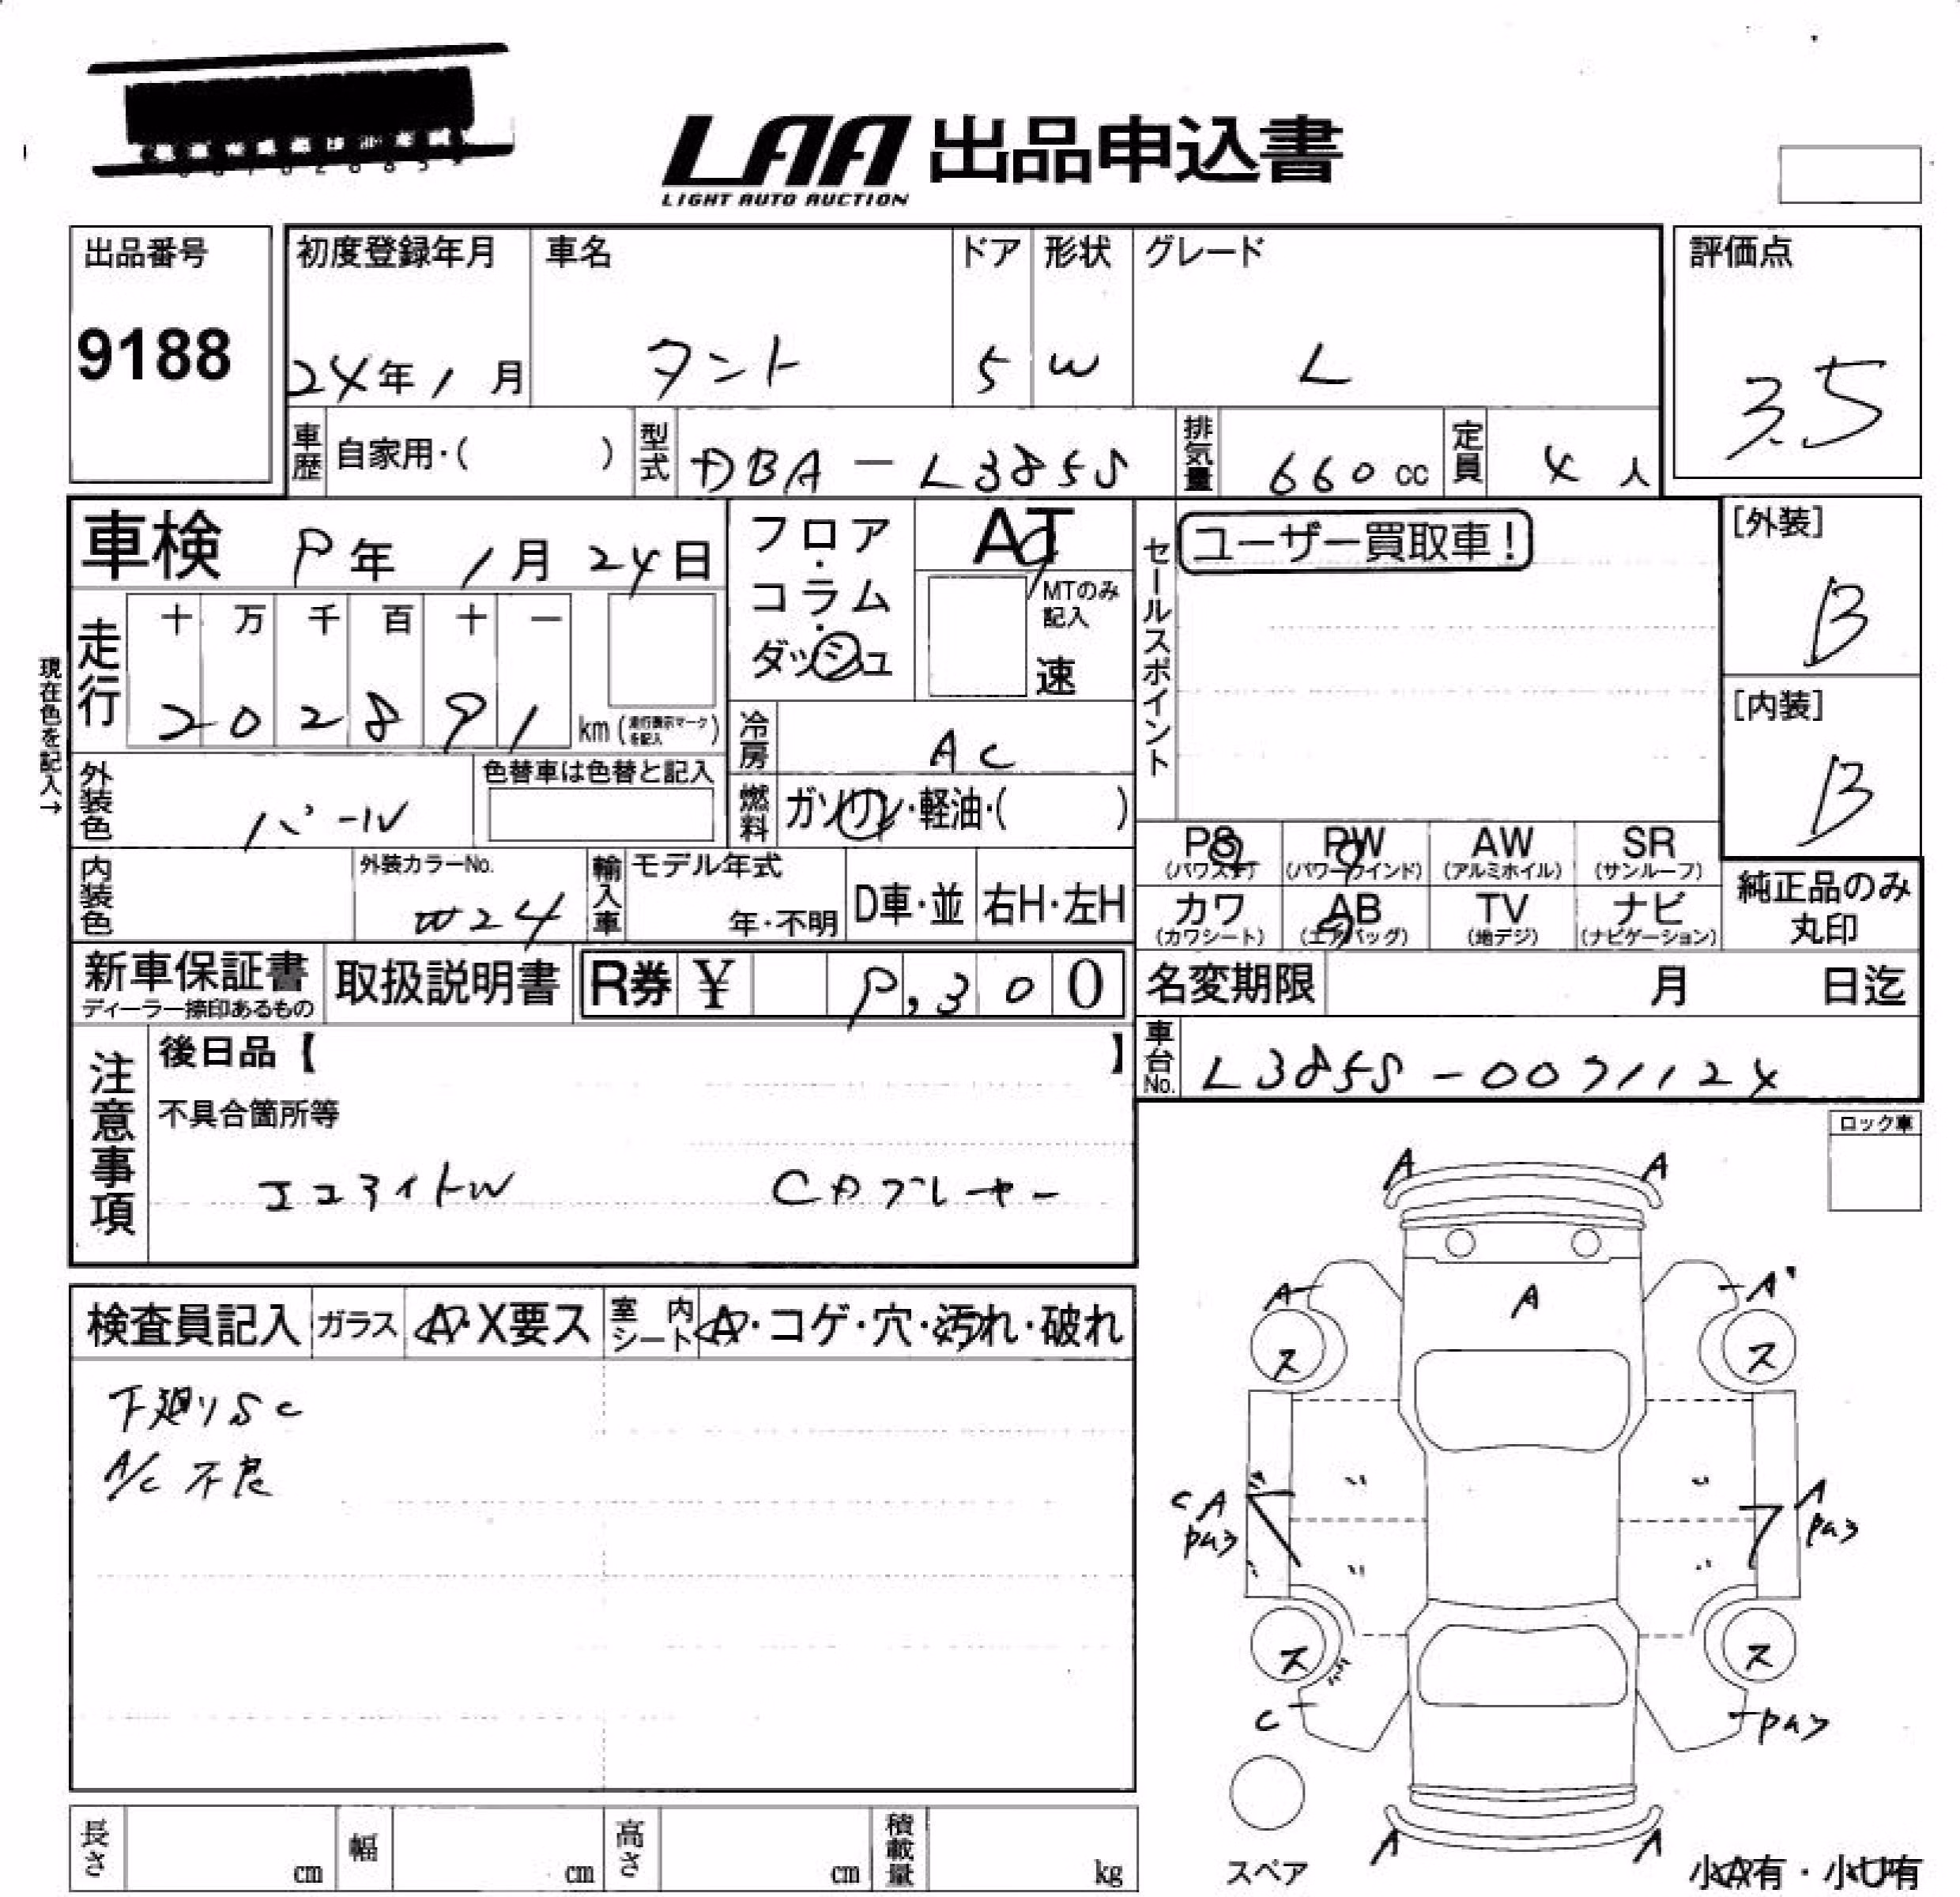 LAA 出品申込書
LIGHT AUTO AUCTION
出品番号
9188
初度登録年月
24年1月
車名
タント
ドア
5
形状
W
グレード
L
評価点
3.5
車歴 自家用・( )
型式 DBA-L385S
排気量 660cc
定員 4人
車検 9年1月24日
フロア・コラム・ダッシュ
AT
MTのみ記入
速
セールスポイント
ユーザー買取車!
[外装]
B
[内装]
B
現在色を記入→
走行
十 万 千 百 十 一
2 0 2 8 9 1
km (走行表示マークを記入)
冷房 AC
外装色 パール
色替車は色替と記入
燃料 ガソリン・軽油・( )
PS (パワステ)
PW (パワーウインド)
AW (アルミホイル)
SR (サンルーフ)
カワ (カワシート)
AB (エアバッグ)
TV (地デジ)
ナビ (ナビゲーション)
純正品のみ丸印
内装色
外装カラーNo.
W24
輸入車
モデル年式
年・不明
D車・並
右H・左H
新車保証書
ディーラー捺印あるもの
取扱説明書
R券 ¥ 9,300
名変期限 月 日迄
車台No. L385S-0071124
注意事項
後日品【 】
不具合箇所等
エコアイドル CDプレーヤー
ロック車
検査員記入
ガラス A・X要ス
室内シート A・コゲ・穴・汚れ・破れ
下廻りSC
A/C 不良
A A
A A A
ス ス
CA A
ス ス
C
A A
スペア
小A有・小U有
長さ cm
幅 cm
高さ cm
積載量 kg